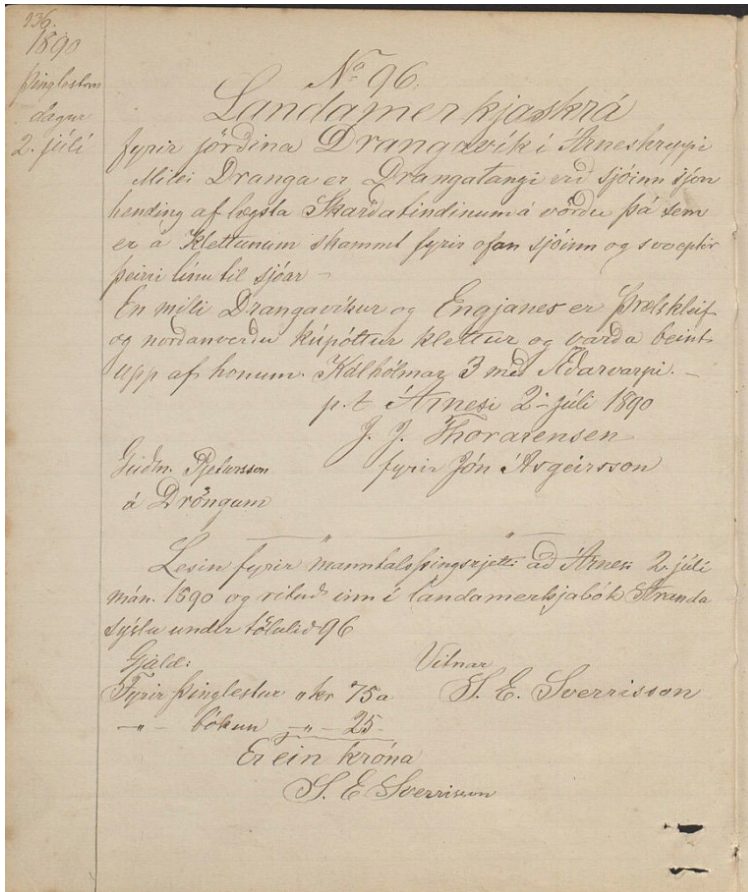 936.
1890
Þinglestrar
dagur
2. júlí
No 96.
Landamerkjaskrá
fyrir jörðina Drangavík í Árneshreppi
Milli Dranga er Drangatangi við sjóinn sjón
hending af lægsta Skarðatindinum á vörðu þá sem
er á Klettunum skammt fyrir ofan sjóinn og svo eptir
þeirri línu til sjóar –
En milli Drangavíkur og Engjanes er Þrælskleif
og norðanverðu kúpóttur klettur og varða beint
upp af honum. Kálhólmar 3 með Æðarvarpi. –
p.t Árnesi 2. júlí 1890
J. J. Thorarensen
Guðm. Pjetursson fyrir Jón Ásgeirsson
á Dröngum
Lesin fyrir manntalsþingsrjetti að Árnesi 2. júlí
mán. 1890 og rituð inn í landamerkjabók Stranda
sýslu undir tölulið 96
Gjald: Vitnar
Fyrir þinglestur " kr 75 a S. E. Sverrisson
–"– bókun –"– 25 –
Er ein króna
S. E Sverrisson